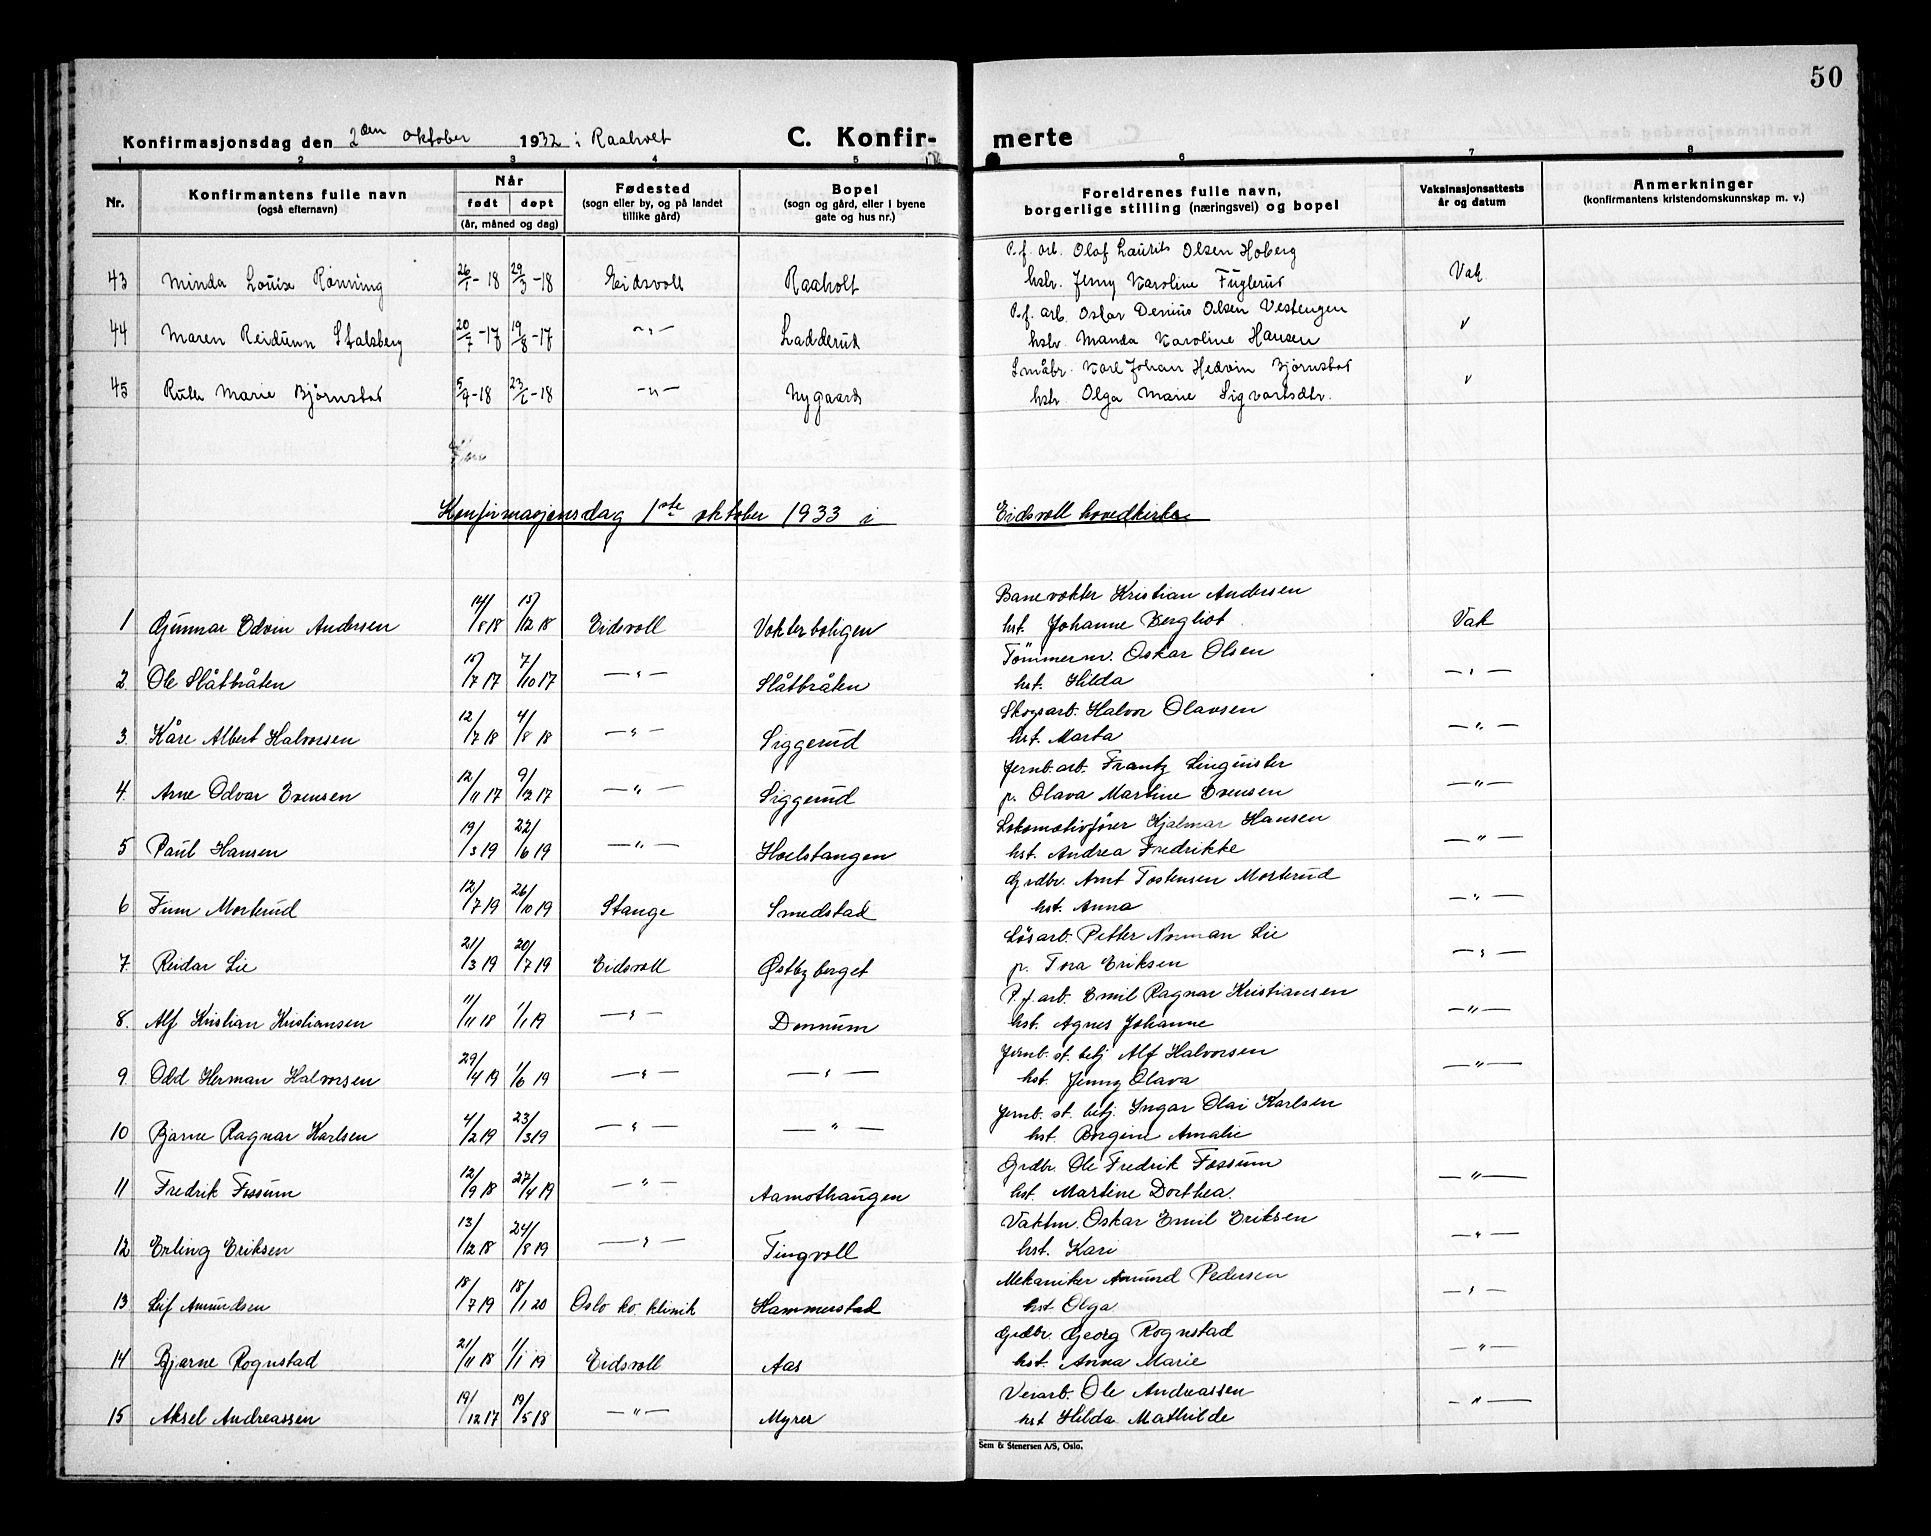 50
Konfirmasjonsdag den 2den oktober 1932 i Raaholt
C. Konfir- merte
1 2 3 4 5 6 7 8
Nr.
Konfirmantens fulle navn
(også efternavn)
Når
født døpt
(år, måned og dag)
Fødested
(sogn eller by, og på landet
tillike gård)
Bopel
(sogn og gård, eller i byene
gate og hus nr.)
Foreldrenes fulle navn,
borgerlige stilling (næringsvei) og bopel
Vaksinasjonsattests
år og datum
Anmerkninger
(konfirmantens kristendomskunnskap m. v.)
P.f. arb. Olaf Laurits Olsen Hoberg
43 Minda Louise Rønning 26/1-18 29/3-18 Eidsvoll Raaholt hstr. Jenny Karoline Fuglerud Vak
P.f. arb. Oskar Denius Olsen Vestengen
44 Maren Reidunn Stalsberg 20/7-17 19/8-17 -"- Ladderud hstr. Manda Karoline Hansen "
Småbr. Karl Johan Hedvin Bjørnstad
45 Ruth Marie Bjørnstad 5/4-18 23/6-18 -"- Nygaard hstr. Olga Marie Sigvartsdtr. "
Konfirmasjonsdag 1ste oktober 1933 i Eidsvoll hovedkirke
Banevokter Kristian Andersen
1 Gunnar Edvin Andersen 14/8 18 15/12 18 Eidsvoll Vokterboligen hst. Johanne Bergliot Vak
Tømmerm. Oskar Olsen
2 Ole Slåtbråten 15/7 17 7/10 17 -"- Slåtbråten hst. Hilda -"-
Skogsarb. Halvor Olavsen
3. Kåre Albert Halvorsen 12/7 18 4/8 18 -"- Siggerud hst. Marta -"-
Jernb. arb. Frantz Linguister
4. Arne Odvar Evensen 12/11 17 9/12 17 -"- Siggerud p. Olava Martine Evensen -"-
Lokomotivfører Hjalmar Hansen
5 Paul Hansen 19/3 19 22/6 19 -"- Hoelstangen hst. Andrea Fredrikke -"-
Grdbr. Arnt Tostensen Morterud
6 Finn Morterud 12/7 19 26/10 19 Stange Smedstad hst. Anna -"-
Løsarb. Petter Norman Lie
7. Reidar Lie 21/3 19 20/7 19 Eidsvoll Østbyberget p. Tora Eriksen -"-
P.f. arb. Emil Ragnar Kristiansen
8. Alf Kristian Kristiansen 11/11 18 1/1 19 -"- Dønnum hst. Agnes Johanne -"-
Jernb. st. betj Alf Halvorsen
9. Odd Herman Halvorsen 29/4 19 1/6 19 -"- -"- hst. Jenny Olava -"-
Jernb. st. betj. Ingar Olai Karlsen
10 Bjarne Ragnar Karlsen 4/2 19 23/3 19 -"- -"- hst. Borgine Amalie
Grdbr. Ole Fredrik Fossum
11 Fredrik Fossum 12/9 18 27/4 19 -"- Aamothaugen hst. Martine Dorthea. -"-
Vaktm. Oskar Emil Eriksen
12 Erling Eriksen 13/12 18 24/8 19 -"- Tingvoll hst. Kari -"-
Mekaniker Amund Pedersen
13 Leif Amundsen 18/7 19 18/1 20 Oslo kv. klinik Hammerstad hst. Olga -"-
Grdbr. Georg Rognstad
14 Bjarne Rognstad 21/11 18 1/1 19 Eidsvoll Aas hst. Anna Marie -"-
Veiarb. Ole Andreassen
15 Aksel Andreassen 19/12 17 19/5 18 -"- Myrer hst Hilda Mathilde -"-
Sem & Stenersen A/S, Oslo.